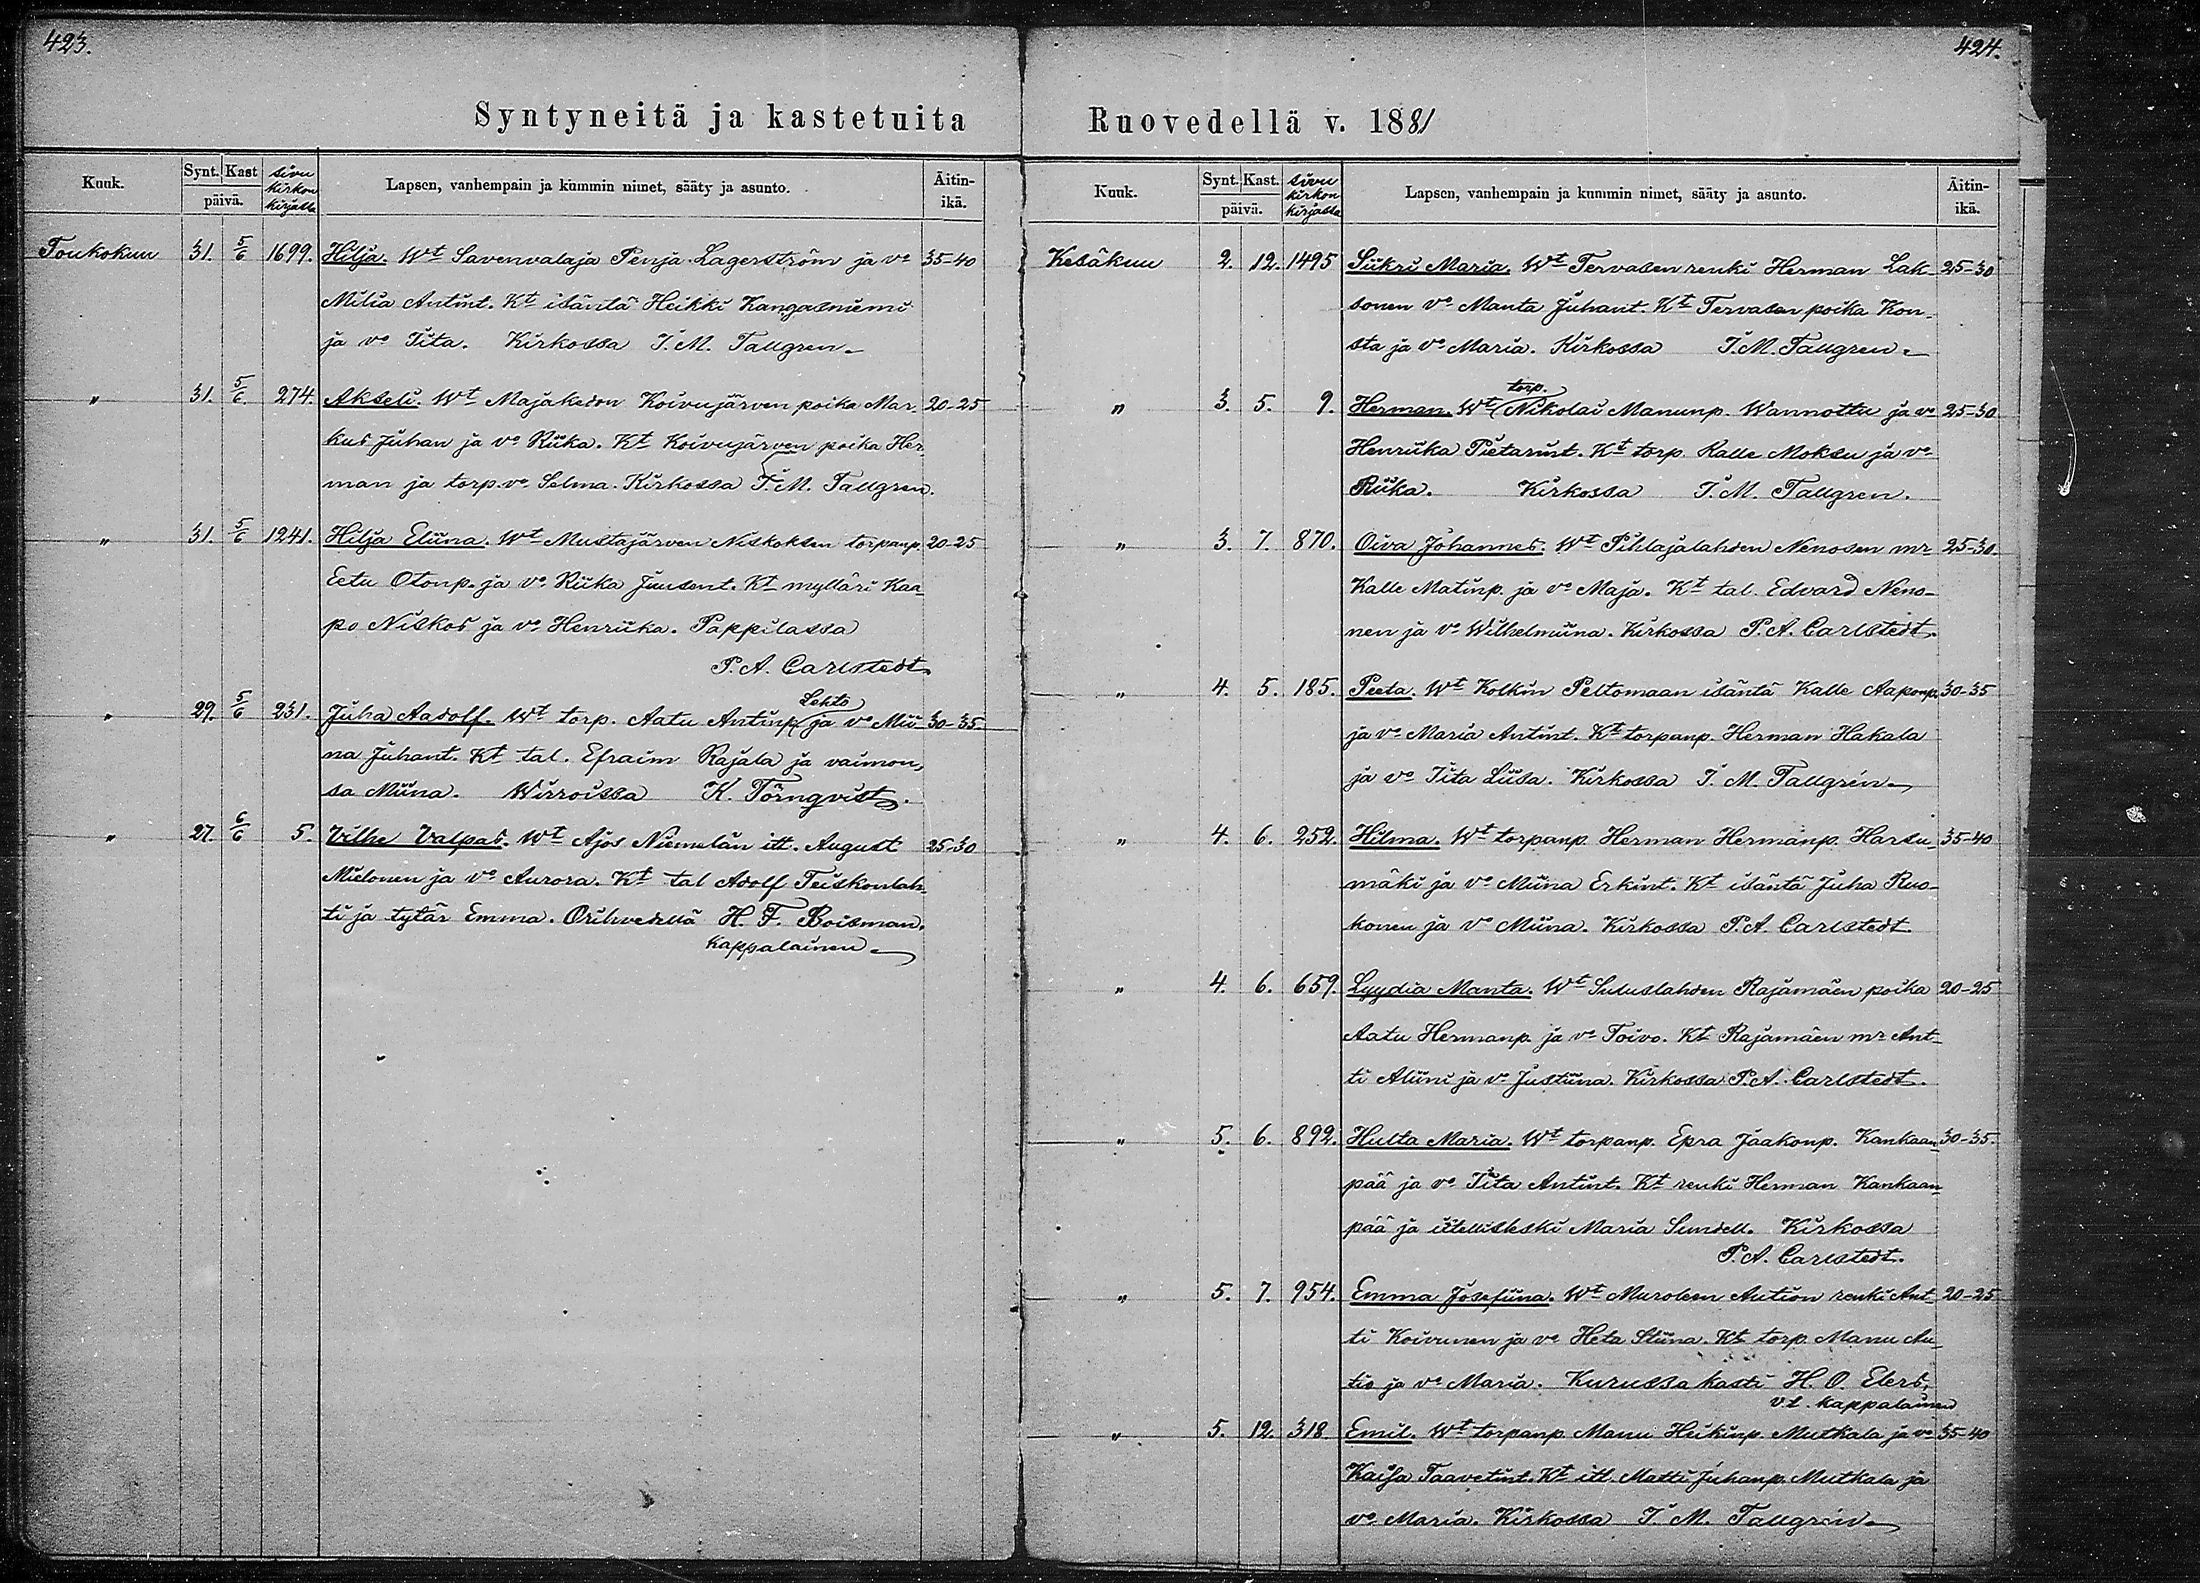 423.
Syntyneitä ja kastetuita
Kuuk. Synt. Kast päivä. sivu kirkon kirjassa Lapsen, vanhempain ja kummin nimet, sääty ja asunto. Äitin-ikä.
Toukokuu 31. 5/6 1699. Hilja. Wt Savenvalaja Penja Lagerström ja vo 35-40
Milia Antint. Kt isäntä Heikki Kangasniemi
ja vo Iita. Kirkossa I. M. Tallgren.
" 31. 5/6. 274. Akseli. Wt Majakedon Koivujärven poika Mar- 20-25
kus Juhan ja vo Riika. Kt Koivujärven poika Her
man ja torp. vo Selma. Kirkossa I. M. Tallgren.
" 31. 5/6 1241. Hilja Eliina. Wt Mustajärven Niskoksen torpanp. 20-25
Eetu Otonp. ja vo Riika Juusent. Kt mylläri Kaa-
po Niskos ja vo Henriika. Pappilassa
P. A. Carlstedt.
" 29. 5/6 231. Juha Aadolf. Wt torp. Aatu Antinp. Lehto ja vo Mii- 30-35
na Juhant. Kt tal. Efraim Rajala ja vaimon,
sa Miina. Wirroissa K. Törnqvist.
" 27. 6/6 5. Vilhe Valpas. Wt Ajos Niemelän itt. August 25-30
Mielonen ja vo Aurora. Kt tal Adolf Teiskonlah-
ti ja tytär Emma. Orihvedellä H. F. Boisman.
kappalainen
424.
Ruovedellä v. 1881
Kuuk. Synt. Kast. päivä. sivu kirkon kirjassa Lapsen, vanhempain ja kummin nimet, sääty ja asunto. Äitin-ikä.
Kesäkuu 2. 12. 1495 Siikri Maria. Wt Tervasen renki Herman Lak- 25-30
sonen vo Manta Juhant. Kt Tervasen poika Kon-
sta ja vo Maria. Kirkossa I. M. Tallgren.
" 3. 5. 9. Herman. Wt torp. Nikolai Manunp. Wannottu ja vo 25-30
Henriika Pietarint. Kt torp. Kalle Moksu ja vo
Riika. Kirkossa I. M. Tallgren.
" 3. 7. 870. Oiva Johannes. Wt Pihlajalahden Nenosen mr 25-30
Kalle Matinp. ja vo Maja. Kt tal. Edvard Neno-
nen ja vo Wilhelmiina. Kirkossa P. A. Carlstedt.
" 4. 5. 185. Peeta. Wt Kolkin Peltomaan isäntä Kalle Aaponp. 30-35
ja vo Maria Antint. Kt torpanp. Herman Hakala
ja vo Iita Liisa. Kirkossa I. M. Tallgren
" 4. 6. 252. Hilma. Wt torpanp. Herman Hermanp. Harsu- 35-40
mäki ja vo Miina Erkint. Kt isäntä Juha Ruo-
konen ja vo Miina. Kirkossa P. A. Carlstedt
" 4. 6. 659. Lyydia Manta. Wt Suluslahden Rajamäen poika 20-25
Aatu Hermanp. ja vo Toivo. Kt Rajamäen mr Ant-
ti Aliini ja vo Justiina. Kirkossa P. A. Carlstedt.
" 5. 6. 892. Hulta Maria. Wt torpanp. Epra Jaakonp. Kankaan- 30-35.
pää ja vo Iita Antint. Kt renki Herman Kankaan-
pää ja itellisleski Maria Sundell. Kirkossa
P. A. Carlstedt.
" 5. 7. 954. Emma Josefiina. Wt Muroleen Aution renki Ant- 20-25
ti Koivunen ja vo Heta Stiina. Kt torp. Manu Au-
tio ja vo Maria. Kurussa kasti H. O. Elers,
v. t. kappalainen
" 5. 12. 318. Emil. Wt torpanp. Manu Heikinp. Mutkala ja vo 35-40
Kaisa Taavetint. Kt itl. Matti Juhanp. Mutkala ja
vo Maria. Kirkossa I. M. Tallgren